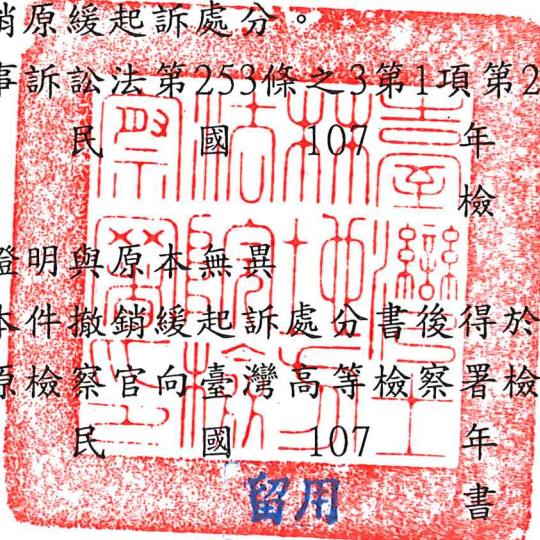 銷原緩起訴處分。
事訴訟法第253條之3第1項第2
民 國 107 年
檢
證明與原本無異
本件撤銷緩起訴處分書後得於
原檢察官向臺灣高等檢察署檢
民 國 107 年
書
留用
臺灣士
林地方
法院檢
察署印